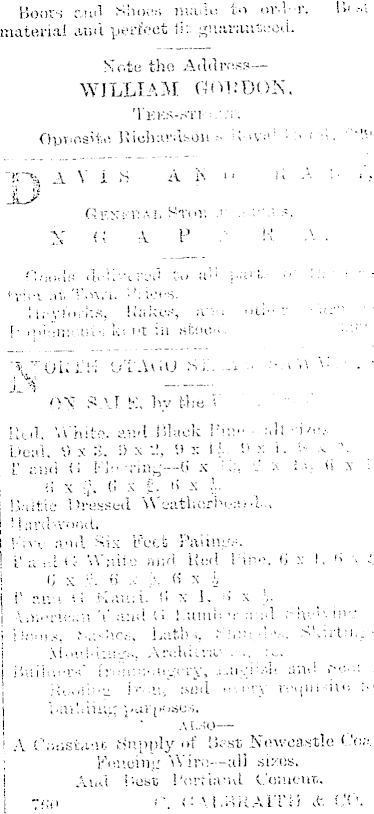 Boots and Shoes made to order. Best
material and perfect fit guaranteed.
Note the Address—
WILLIAM GORDON,
TEES-STREET,
Opposite Richardson's Royal
DAVIS AND
GENERAL STOREKEEPERS,
NGAPARA.
Goods delivered to all parts of the
trict at Town Prices.
Haylocks, Rakes, and other
Implements kept in stock.
NORTH OTAGO STEAM SAWMILLS
ON SALE, by the
Red, White, and Black Pine—all sizes
Deal, 9 x 3, 9 x 2, 9 x 1½, 9 x 1,
T and G Flooring—6 x
6 x 6 x 6 x
Baltic Dressed Weatherboards,
Hardwood.
Five and Six Feet Palings.
T and G White and Red Pine, 6 x 1, 6 x
6 x 6 x 6 x ½
T and G Kauri, 6 x 1, 6 x
American T and G Lumber and Shelving
Doors, Sashes, Laths, Shingles, Skirting
Mouldings, Architraves, &c.
Builders' Ironmongery, English and
Roofing Iron, and every requisite
building purposes.
ALSO—
A Constant Supply of Best Newcastle Coa
Fencing Wire—all sizes.
And Best Portland Cement.
760 C. GALBRAITH & CO.